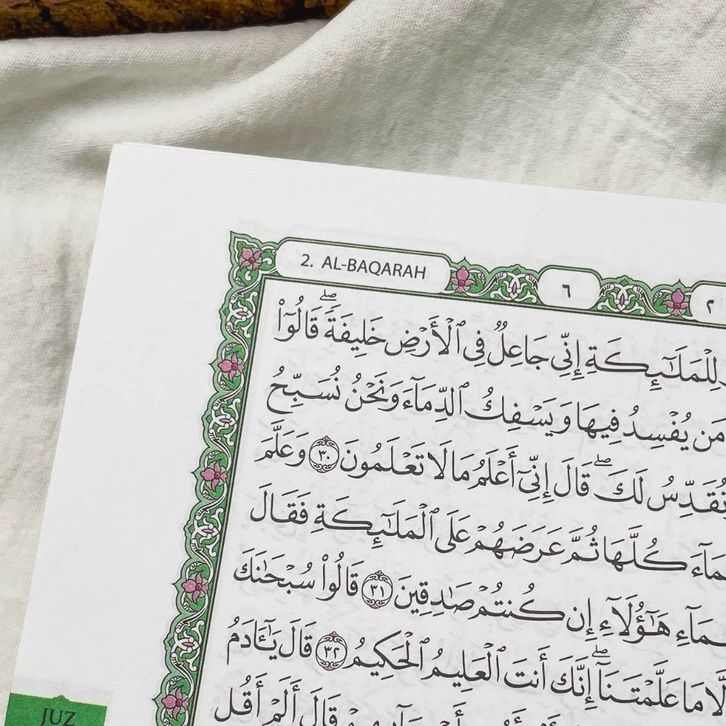 2. AL-BAQARAH
٦
٢
لِلْمَلَـٰٓئِكَةِ إِنِّى جَاعِلٌ فِى ٱلْأَرْضِ خَلِيفَةً ۖ قَالُوٓا۟
مَن يُفْسِدُ فِيهَا وَيَسْفِكُ ٱلدِّمَآءَ وَنَحْنُ نُسَبِّحُ
نُقَدِّسُ لَكَ ۖ قَالَ إِنِّىٓ أَعْلَمُ مَا لَا تَعْلَمُونَ ٣٠ وَعَلَّمَ
كُلَّهَا ثُمَّ عَرَضَهُمْ عَلَى ٱلْمَلَـٰٓئِكَةِ فَقَالَ
هَـٰٓؤُلَآءِ إِن كُنتُمْ صَـٰدِقِينَ ٣١ قَالُوا۟ سُبْحَـٰنَكَ
مَا عَلَّمْتَنَآ ۖ إِنَّكَ أَنتَ ٱلْعَلِيمُ ٱلْحَكِيمُ ٣٢ قَالَ يَـٰٓـَٔادَمُ
قَالَ أَلَمْ أَقُل
JUZ